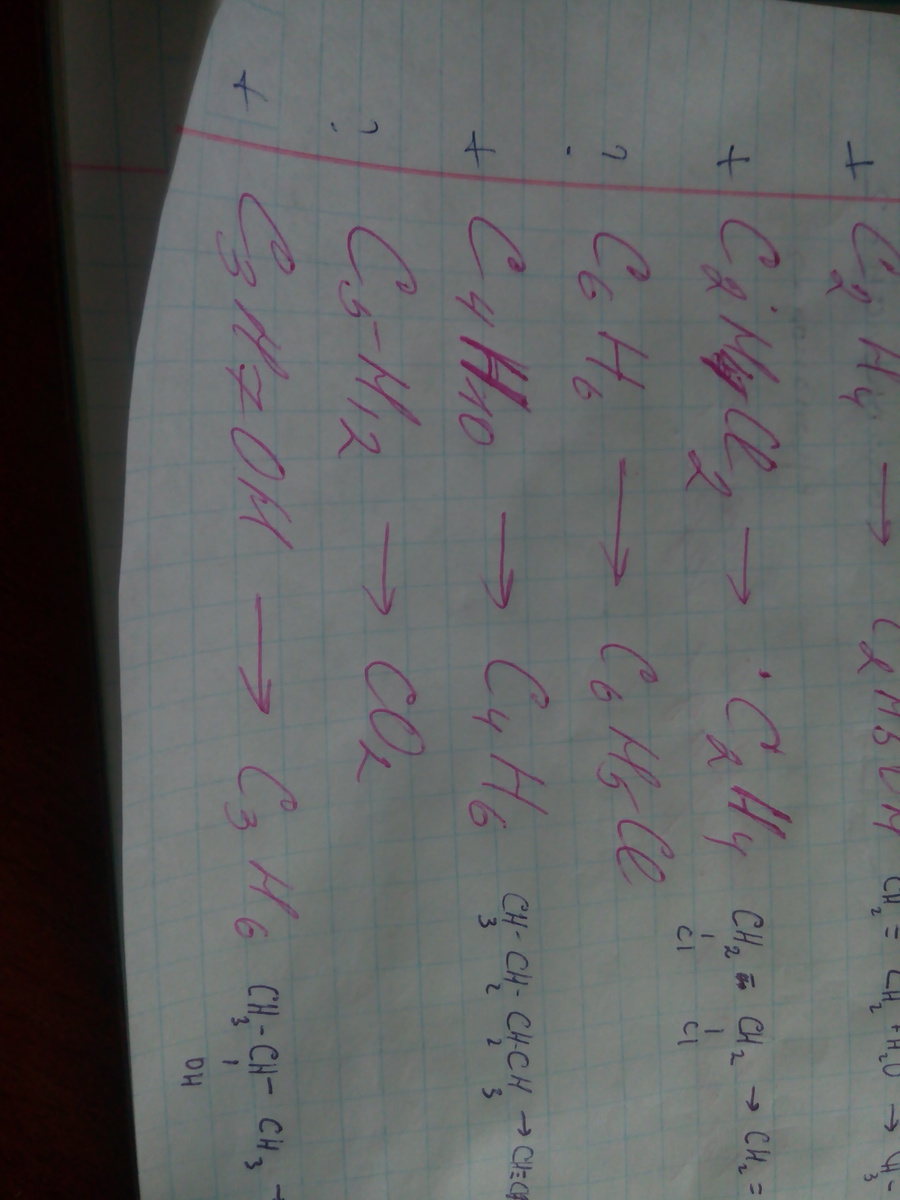 + C2H4 → C2H5OH CH2 = CH2 + H2O → CH3 -
+ C2H4Cl2 → C2H4 CH2 = CH2 → CH2 =
Cl Cl
? C6H6 → C6H5Cl
+ C4H10 → C4H6 CH3 - CH2 - CH2CH3 →
? C5H12 → CO2
+ C3H7OH → C3H6 CH3 - CH - CH3 →
OH